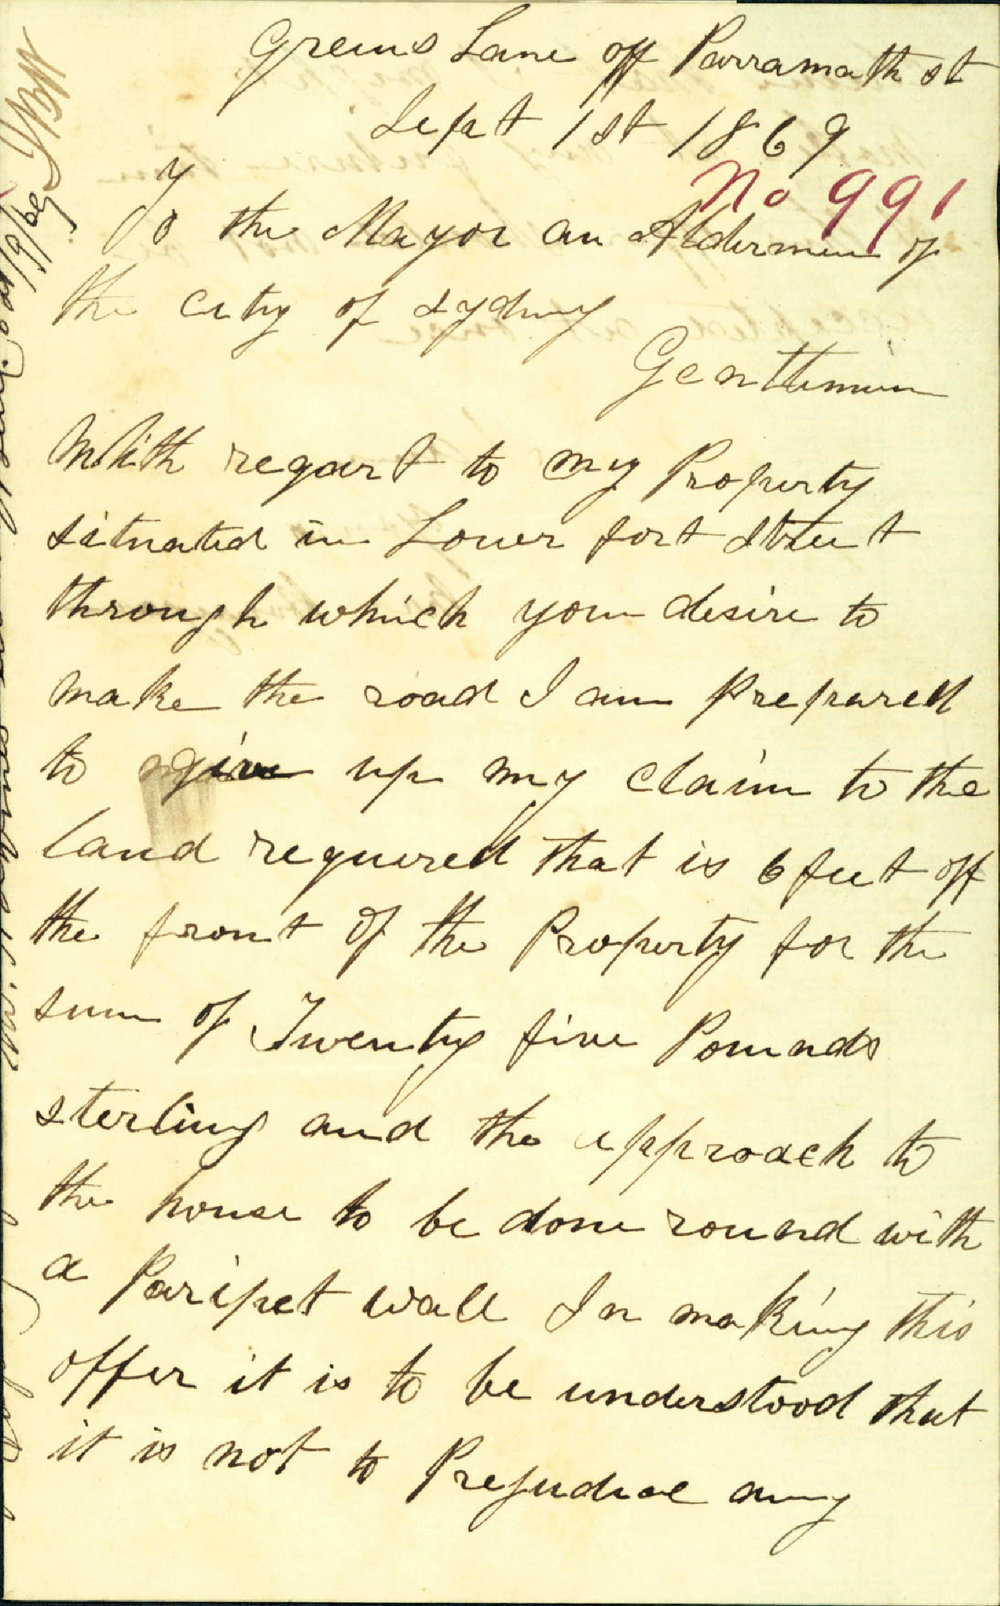 Greens Lane off Parramath st
Sept 1st 1869
No 991
To the Mayor an Aldermen of
the city of sydney
Gentlimen
With regart to my Property
situated in Lower fort Street
through which your desire to
make the road I am prepared
to give up my claim to the
land requered that is 6 feet off
the front of the Property for the
sum of Twenty five Pounds
sterling and the approach to
the house to be done round with
a Paripet wall In making this
offer it is to be understood that
it is not to Prejudice any